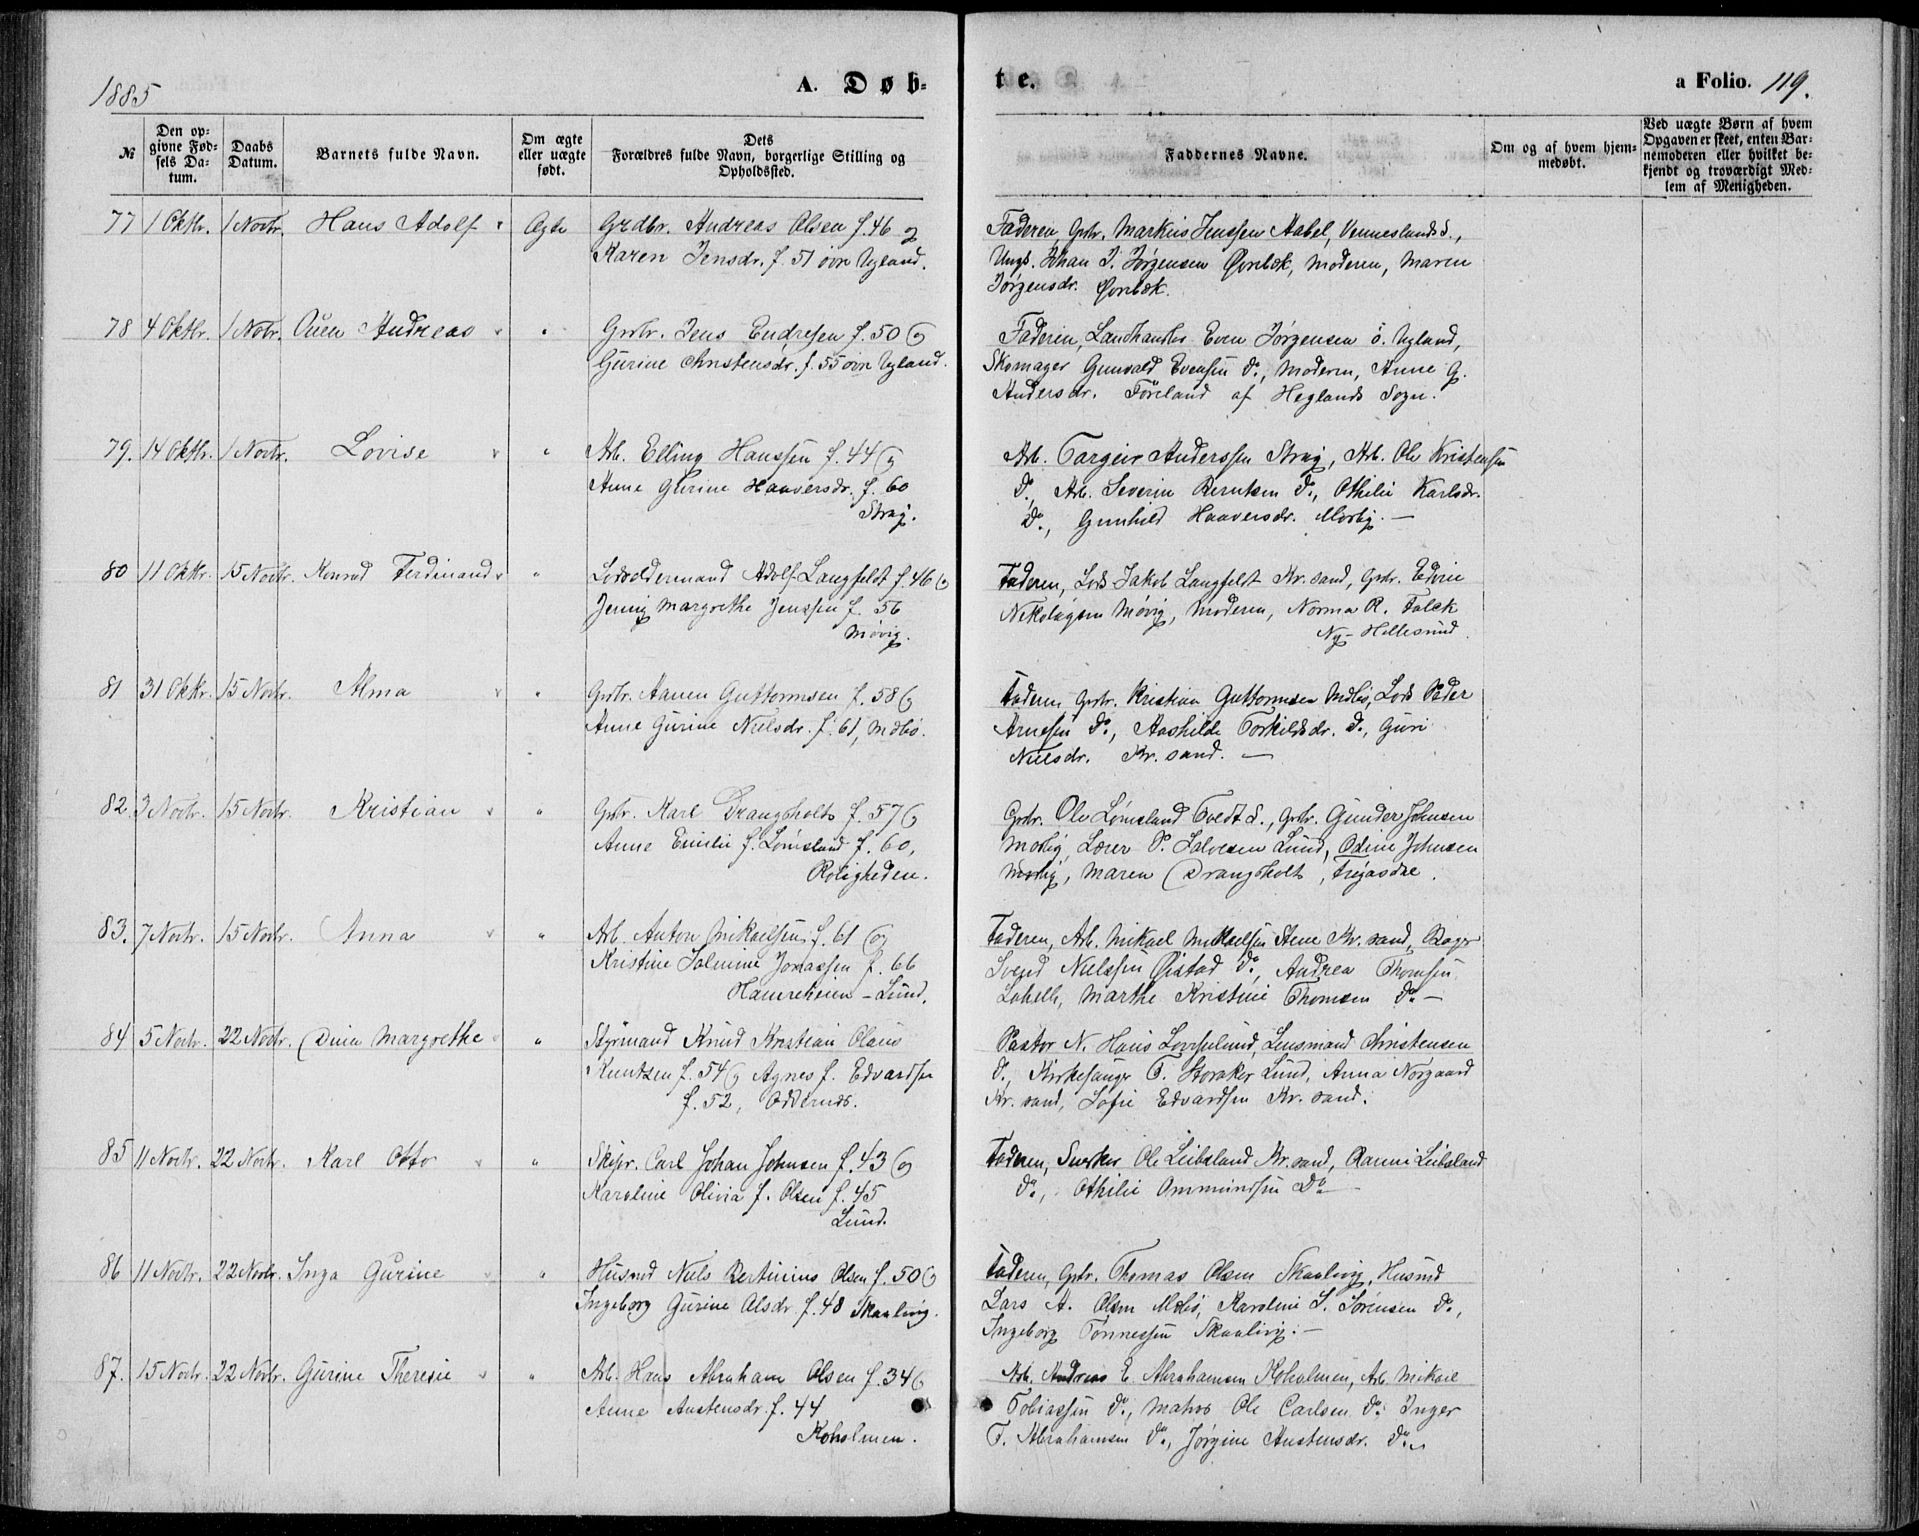 1885
A. Døb-
te.
a Folio. 119.
№
Den op-
givne Fød-
sels Da-
tum.
Daabs
Datum.
Barnets fulde Navn.
Om ægte
eller uægte
født.
Dets
Forældres fulde Navn, borgerlige Stilling og
Opholdssted.
Faddernes Navne.
Om og af hvem hjem-
medøbt.
Ved uægte Børn af hvem
Opgaven er skeet, enten Bar-
nemoderen eller hvilket be-
kjendt og troværdigt Med-
lem af Menigheden.
77 1 Oktbr. 1 Novbr. Hans Adolf " Ægte Grdbr. Andreas Olsen f. 46 og
Karen Jensdr. f. 51 øvre Ugland.
Faderen, Grbr. Markus Jenssen Aabel, Venneslands S.,
Ungk. Johan J. Jørgensen Øvrebøk, Moderen, Maren
Jørgensdr. Øvrebøk.
78 4 Oktbr. 1 Nobr. Ouen Andreas " " Grbr. Jens Endresen f. 50 og
Gurine Christensdr. f. 55 øvre Ugland.
Faderen, Landhandler Even Jørgensen ö. Ugland,
Skomager Gunvald Evensen do., Moderen, Anne G.
Andersdr. Föreland af Heglands Sogn.
79. 14 Oktbr. 1 Novbr. Lovise " " Arb. Elling Hanssen f. 44 og
Anne Gurine Haaversdr. f. 60
Strag.
Arb. Targeir Anderssen Strag, Arb. Ole Kristensen
do., Arb. Severin Berntsen do., Othilie Karlsdr.
do., Gunhild Haaversdr. Mosby. —
80 11 Oktbr. 15 Novbr. Konrad Ferdinand " " Lodsoldermand Adolf Langfeldt f. 46 og
Jenny Margrethe Jenssen f. 56
Møvig.
Faderen, Lods Jakob Langfeldt Kr. sand, Grbr.
Nikolaysen Møvig, Moderen, Norma R. Falck
Ny-Hellesund.
81 31 Oktbr. 15 Novbr. Alma " " Grbr. Aanen Guttormsen f. 58 og
Anne Gurine Nielsdr. f. 61,
Faderen, Grbr. Kristian Guttormsen Lods Peder
Arnesen do., Aashilde Torkildsdr. do., Guri
Nielsdr. Kr. sand. —
82 3 Novbr. 15 Novbr. Kristian " " Grbr. Karl Drangsholt f. 57 og
Anne Emilie f. Lømsland f. 60,
Roligheden.
Grbr. Ole Lømsland Tvedt S., Grbr. Gunder Johnsen
Mosby, Lærer P. Salvesen Lund, Odine Johnsen
Mosby, Maren Drangsholt,
83. 7 Novbr. 15 Novbr. Anna " " Arb. Anton Mikaelsen f. 61 og
Kristine Jalmine Jonassen f. 66
Hamreheien - Lund.
Faderen, Arb. Mikael Mikaelsen Stene Kr. sand, Bager
Svend Nielssen Øistad do., Andrea Thomsen
Lahelle, Marthe Kristine Thomsen do. —
84 5 Novbr. 22 Novbr. Dina Margrethe " " Styrmand Knud Kristian Olaus
Knutsen f. 54 og Agnes f. Edvardsen
f. 52, Oddernes.
Pastor N. Hans Lund, Lensmand Christensen
do., Kirkesanger T. Storaker Lund, Anna Nørgaard
Kr. sand, Sofie Edvardsen Kr. sand.
85 11 Novbr. 22 Novbr. Karl Otto " " Skipr. Carl Johan Johnsen f. 43 og
Karoline Olivia f. Olsen f. 45
Lund.
Faderen, Snedker Ole Leibsland Kr. sand, Leibsland
do., Othilie Ommundsen do —
86 11 Novbr. 22 Novbr. Inga Gurine " " Husmd Niels Bertinius Olsen f. 50 og
Ingeborg Gurine Alsdr. f. 48 Skaalevig.
Faderen, Grbr. Thomas Olsen Skaalevig, Husmd
Lars A. Olsen Karoline S. Sørensen do.,
Ingeborg Tønnessen Skaalevig. —
87. 15 Novbr. 22 Novbr. Gurine Theresie " " Arb. Hans Abraham Olsen f. 34 og
Anne Austensdr. f. 44
Koholmen.
Arb. Andreas E. Abrahamsen Koholmen, Arb. Mikael
Tobiassen do., Matros Ole Carlsen do., Inger
T. Abrahamsen do., Jørgine Austensdr. do.